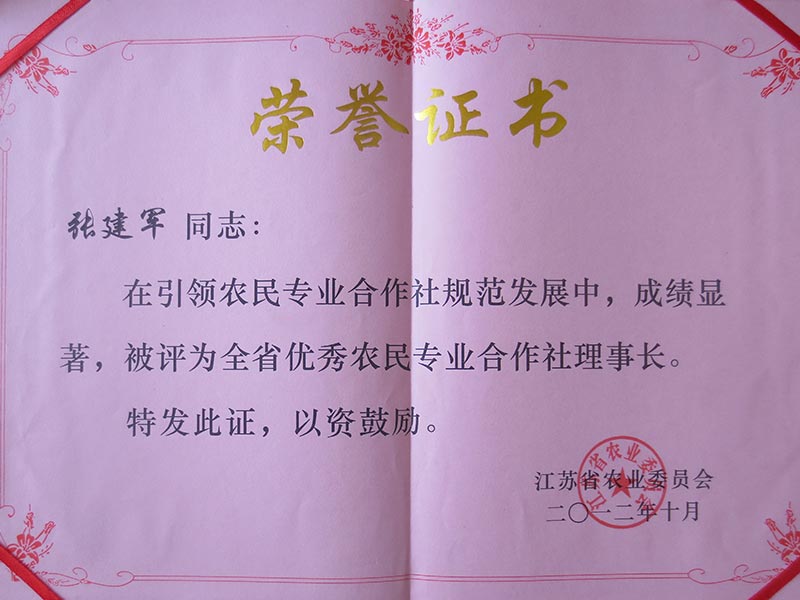 荣誉证书
张建军 同志：
在引领农民专业合作社规范发展中，成绩显
著，被评为全省优秀农民专业合作社理事长。
特发此证，以资鼓励。
江苏省农业委员会
二〇一二年十月
江苏省农业委员会